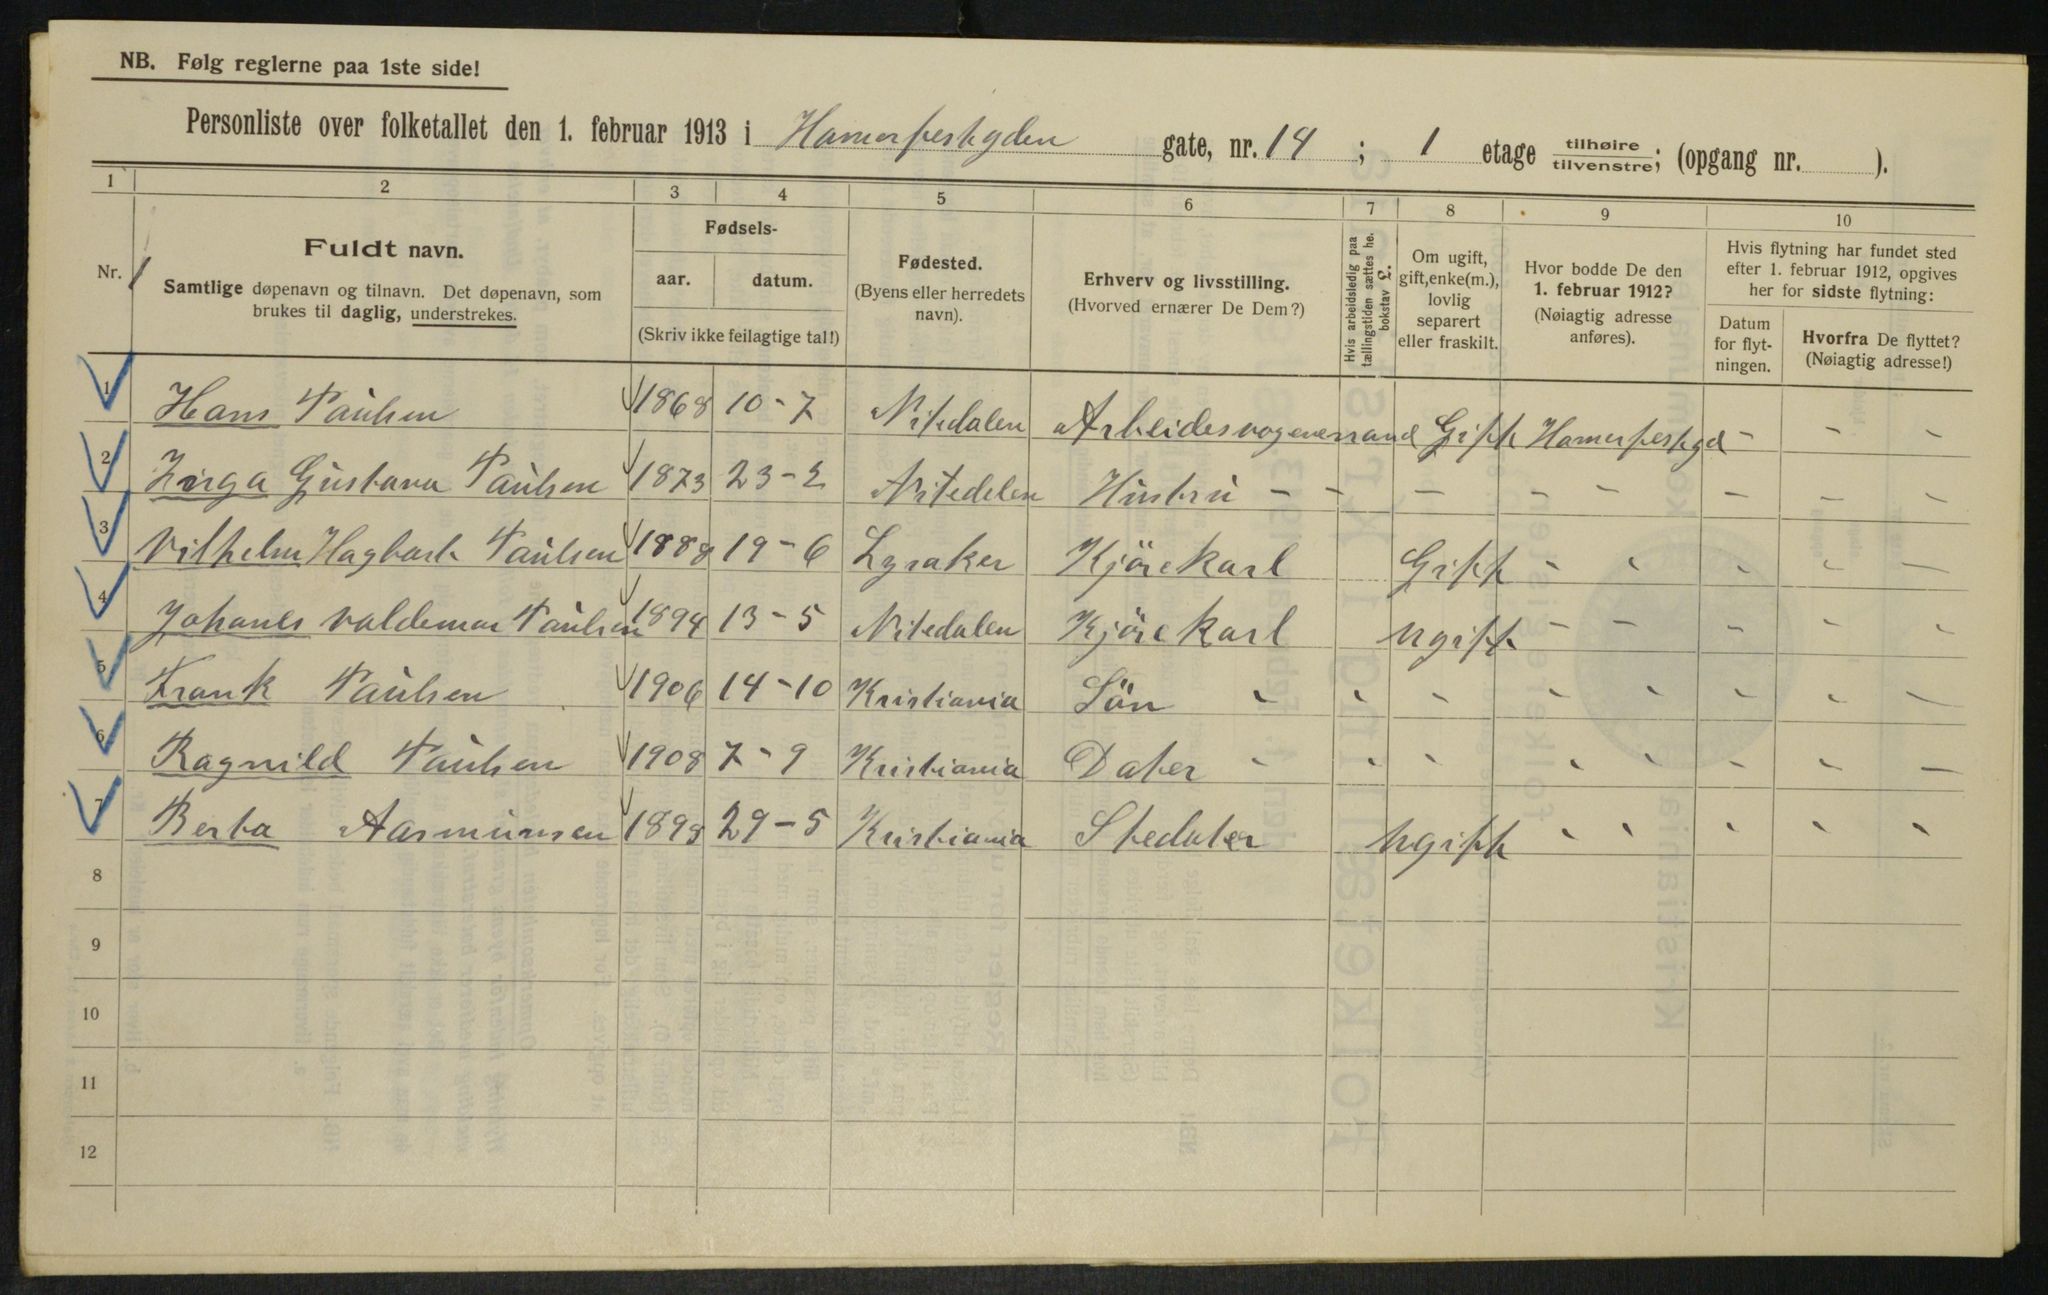 NB. Følg reglerne paa 1ste side!
Personliste over folketallet den 1. februar 1913 i Hamerfestgden gate, nr. 14 ; 1 etage tilhøire tilvenstre; (opgang nr. ).
1 2 3 4 5 6 7 8 9 10
Nr. 1
Fuldt navn.
Samtlige døpenavn og tilnavn. Det døpenavn, som brukes til daglig, understrekes.
Fødsels-
aar. datum.
(Skriv ikke feilagtige tal!)
Fødested.
(Byens eller herredets navn).
Erhverv og livsstilling.
(Hvorved ernærer De Dem?)
Hvis arbeidsledig paa tællingstiden sættes he. bokstav L.
Om ugift, gift, enke(m.), lovlig separert eller fraskilt.
Hvor bodde De den 1. februar 1912?
(Nøiagtig adresse anføres).
Hvis flytning har fundet sted efter 1. februar 1912, opgives her for sidste flytning:
Datum for flyt-ningen.
Hvorfra De flyttet?
(Nøiagtig adresse!)
1 Hans Paulsen 1868 10-7 Nitedalen Arbeidsvognmand Gift Hamerfestgd - - -
2 Inga Gustava Paulsen 1873 23-2 Nitedelen Hustru - - - - - - - -
3 Vilhelm Hagbart Paulsen 1888 19-6 Lysaker Kjörekarl Gift - - - - -
4 Johanes Valdemar Paulsen 1894 13-5 Nitedalen Kjörekarl Ugift - - - - -
5 Frank Paulsen 1906 14-10 Kristiania Sön - - - - - - - -
6 Ragnild Paulsen 1908 7-9 Kristiania Dater - - - - - - - -
7 Berta Aasmunsen 1898 29-5 Kristiania Stedater Ugift - - - - -
8
9
10
11
12